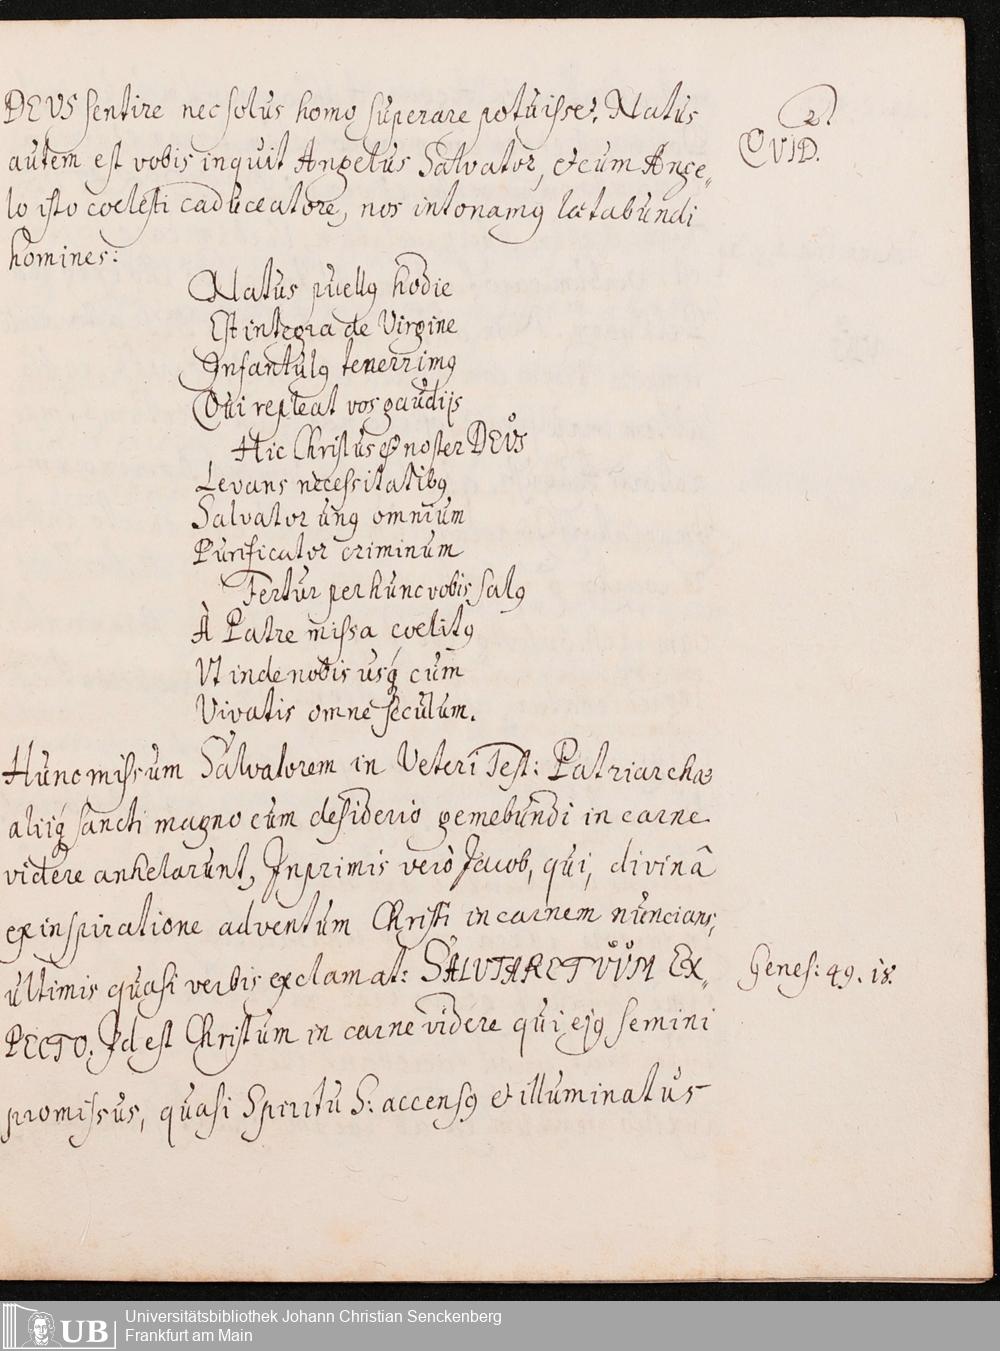 DEUS sentire nec solus homo superare potuisset. Natus
2.
autem est vobis inquit Angelus Salvator, et cum Ange„
QVID.
lo isto coelesti caduceatore, nos intonamꝰ lætabundi
homines:
Natus puellꝰ hodie
Est integra de Virgine
Infantulꝰ tenerrimꝰ
Qui repleat vos gaudijs
Hic Christus et noster DEUS
Levans necessitatibꝰ
Salvator unꝰ omnium
Purificator criminum
Fertur per hunc vobis salꝰ
À Patre missa coelitꝰ
Ut inde nobis usq́ cum
Vivatis omne seculum.
Hunc missum Salvatorem in Veteri Test: Patriarchæ
aliiq́ sancti magno cum desiderio gemebundi in carne
videre anhelarunt, Inprimis verò Jacob, qui, divinâ
ex inspiratione adventum Christi in carnem nuncians,
ultimis quasi verbis exclamat: SALUTARE TUUM EX„
Genes: 49. 18.
PECTO. Id est Christum in carne videre qui ejꝰ semini
promissus, quasi Spiritu S: accensꝰ et illuminatus
UB
Universitätsbibliothek Johann Christian Senckenberg
Frankfurt am Main